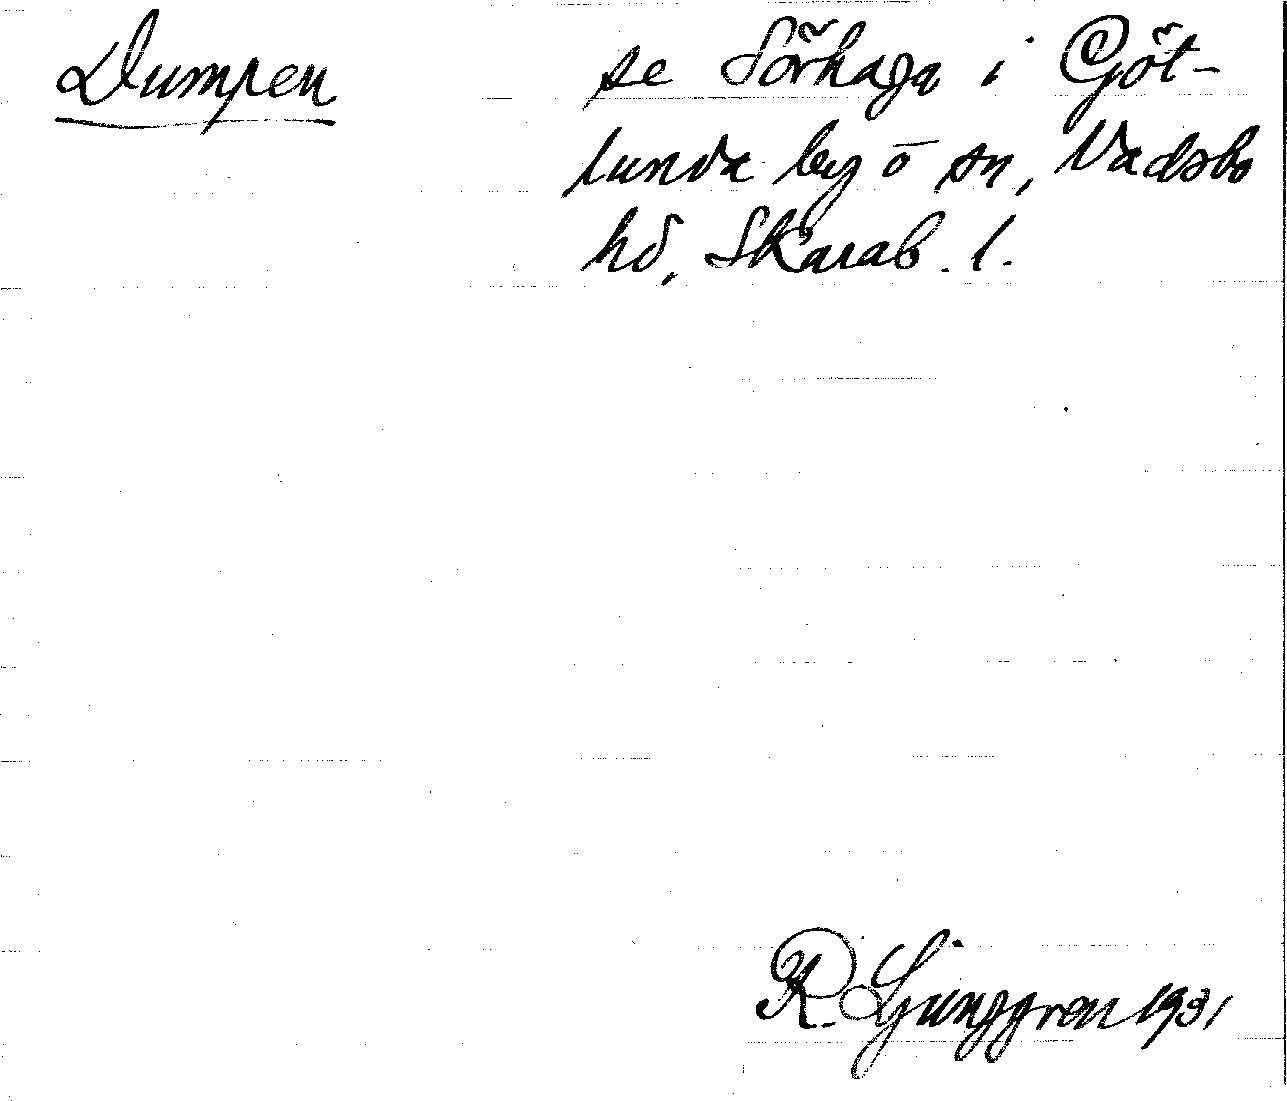 Dumpen se Sörhaga i Göt-
lunda by o sn, Vadsbo
hd, Skarab. l.
R. Ljunggren 1931